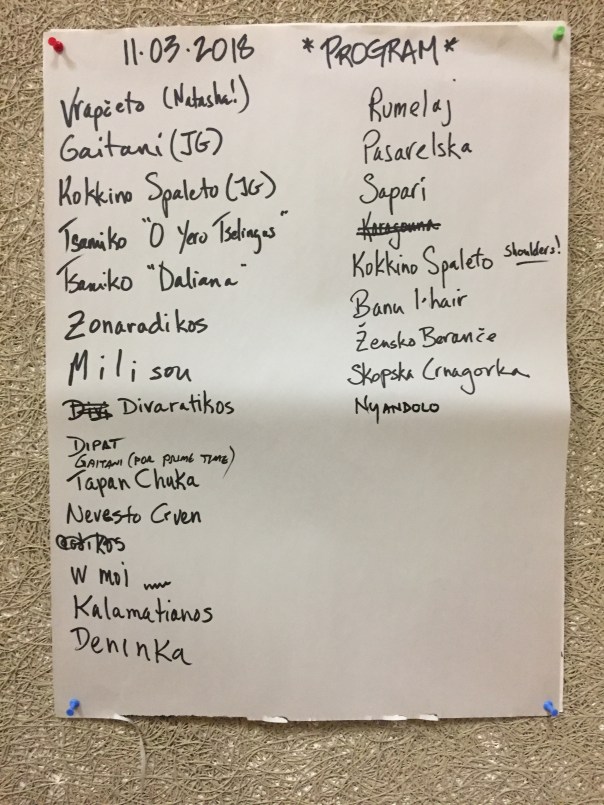 11.03.2018 *PROGRAM*
Vrapčeto (Natasha!)
Gaitani (JG)
Kokkino Spaleto (JG)
Tsamiko "O Yero Tselingas"
Tsamiko "Daliana"
Zonaradikos
Mili sou
Divaratikos
DIPAT
GAITANI (FOR PRIME TIME)
Tapan Chuka
Nevesto Crven
W moi
Kalamatianos
Deninka
Rumelaj
Pasarelska
Sapari
Karagouna
Kokkino Spaleto shoulders!
Banu l'hair
Žensko Beranče
Skopska Crnagorka
NYANDOLO